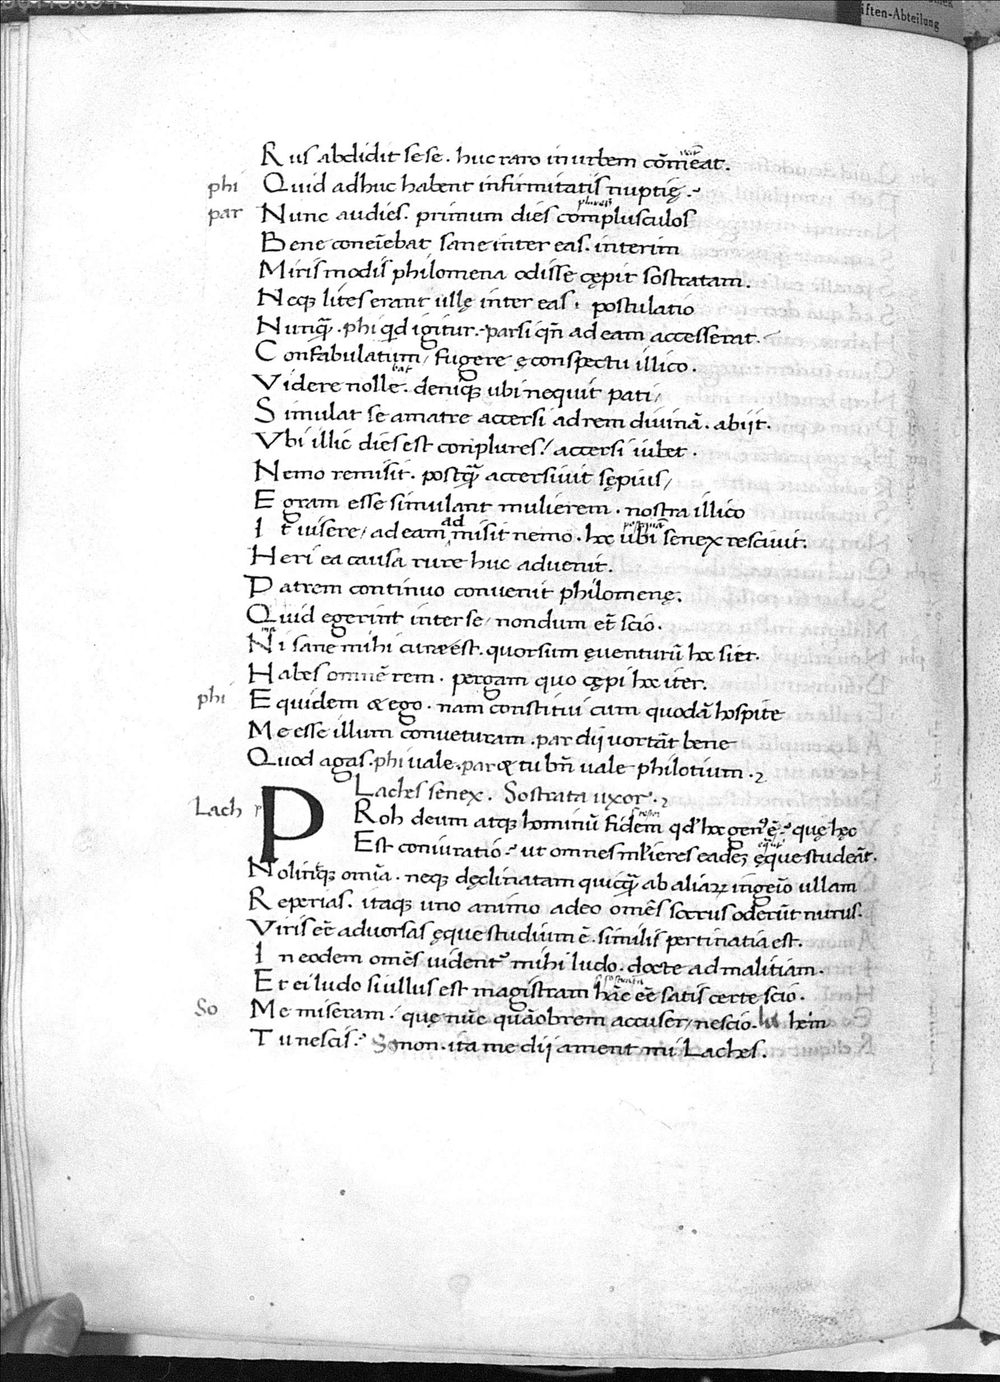 iften-Abteilung
Rus abdidit sese. huc raro in urbem cōmeat.
phi Quid adhuc habent infirmitatis nuptię.
par Nunc audies. primum dies complusculos
Bene coneīebat sane inter eas. interim
Miris modis philomena odisse cępit sostratam.
Neq; lites erant ullę inter eas. postulatio
Nunq̄. phi qd igitur. par si qn̄ ad eam accesserat.
Confabulatum, fugere e conspectu illico.
Videre nolle. deniq; ubi nequit pati,
Simulat se a matre accersi ad rem diuinā. abijt.
Vbi illic dies est conplures, accersi iubet.
Nemo remisit. postq̄ accersiuit sępius,
Egram esse simulant mulierem. nostra illico
It uisere, ad eam ad misit nemo. hoc ubi senex resciuit.
Heri ea causa rure huc aduenit.
Patrem continuo conuenit philomenę.
Quid egerint inter se, nondum et scio.
Ni sane mihi curæ est. quorsum euenturū hoc siet.
Habes omnē rem. pergam quo cępi hoc iter.
phi Equidem & ego. nam constitui cum quodā hospite
Me esse illum conueturam. par dij uortāt bene
Quod agas. phi uale. par & tu bn̄ uale philotium.
Laches senex. Sostrata uxor.
Lach PRoh deum atq; hominū fidem qd hoc genus ē. quę hęc
Est coniuratio. ut omnes mlieres eadē ęque studeāt.
Nolintq; omīa. neq; dęclinatam quicq̄ ab aliarum ingeīo ullam
Reperias. itaq; uno animo adeo omēs socrus oderūt nurus.
Viris eē aduorsas ęque studium ē. similis pertinatia est.
In eodem omēs uidentur mihi ludo. docte ad malitiam.
Et ei ludo si ullus est magistram hāc eē satis certe scio.
So Me miseram. quę nūc quāobrem accuser, nescio. La hem
Tu nescis. So non. ita me dij ament mi Laches.